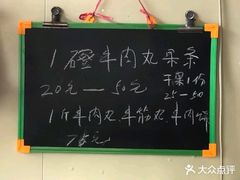 1碗牛肉丸果条
20元——50元
干果1份
25—50
1斤牛肉丸.牛筋丸.牛肉饼
75元
大众点评